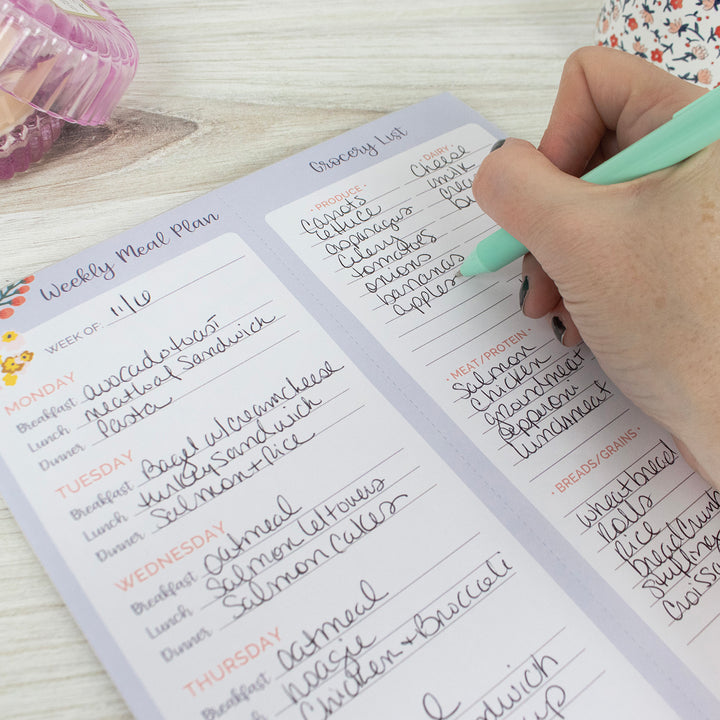 Weekly Meal Plan
WEEK OF: 11/10
MONDAY
Breakfast avocado toast
Lunch meatloaf Sandwich
Dinner Pasta
TUESDAY
Breakfast Bagel w/creamcheese
Lunch turkey Sandwich
Dinner Salmon + Rice
WEDNESDAY
Breakfast oatmeal
Lunch Salmon leftovers
Dinner Salmon Cakes
THURSDAY
Breakfast oatmeal
Lunch hoagie
Chicken + Broccoli
Grocery List
• PRODUCE •
Carrots
lettuce
asparagus
Celery
tomatoes
onions
bananas
apples
• DAIRY •
Cheese
milk
• MEAT/PROTEIN •
Salmon
Chicken
groundmeat
Pepperoni
lunchmeat
• BREADS/GRAINS •
wheatbread
Rolls
Rice
breadcrumbs
Stuffing